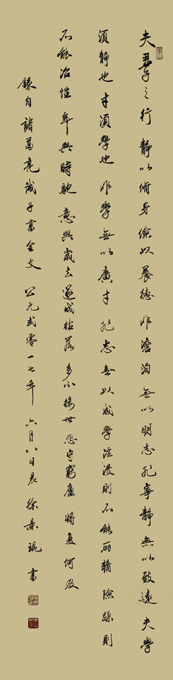 夫君子之行静以修身儉以養德非澹泊無以明志非寧静無以致遠夫學
須静也才須學也非學無以廣才非志無以成學淫漫則不能勵精險躁則
不能冶性年與時馳意與歲去遂成枯落多不接世悲守窮廬將復何及
錄自諸葛亮誡子書全文公元貳零一七年六月八日晨徐書